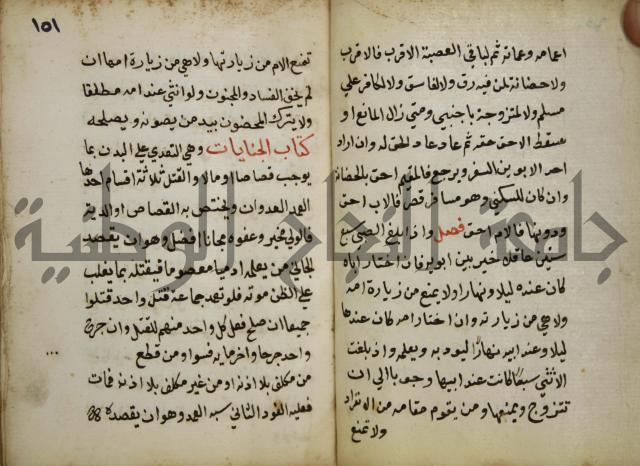 اعمامه وعماته ثم لباقي العصبة الاقرب فالاقرب
ولا حضانة لمن فيه رق ولا لفاسق ولا لكافر علي
مسلم ولا لمتزوجة باجنبي ومتى زال المانع او
سقط الاحق حقه ثم عاد عاد الحق له وان اراد
احد الابوين السفر ويرجع فالمقيم احق بالحضانة
وان كان للسكني وهو مسافة قصر فالاب احق
ودونها فالام احق فصل واذا بلغ الصبي سبع
سنين عاقلا خير بين ابويه فان اختار اباه
كان عنده ليلا ونهارا ولا يمنع من زيارة امه
ولا هي من زيارته وان اختار امه كان عندها
ليلا وعند ابيه نهارا ليؤدبه ويعلمه واذا بلغت
الأنثي سبعا كانت عند ابيها وجوبا الي ان
تتزوج ويمنعها ومن يقوم مقامه من الانفراد
ولا تمنع
١٥١
تمنع الام من زيارتها ولا هي من زيارة امها ان
لم يخف الفساد والمجنون ولو انثي عند امه مطلقا
ولا يترك المحضون بيد من لا يصونه ويصلحه
كتاب الجنايات وهي التعدي علي البدن بما
يوجب قصاصا او مالا والقتل ثلاثة اقسام احدها
العمد العدوان ويختص به القصاص او الدية
فالولي مخير وعفوه مجانا افضل وهو ان يقصد
الجاني من يعلمه ادميا معصوما فيقتله بما يغلب
علي الظن موته فلو تعمد جماعة قتل واحد قتلوا
جميعا ان صلح فعل كل واحد منهم للقتل وان جرح
واحد جرحا واخر مايه فسوا ومن قطع
من مكلف بلا اذنه او من غير مكلف بلا اذن فمات
فعليه القود الثاني شبه العمد وهو ان يقصده
جامعة النجاح الوطنية